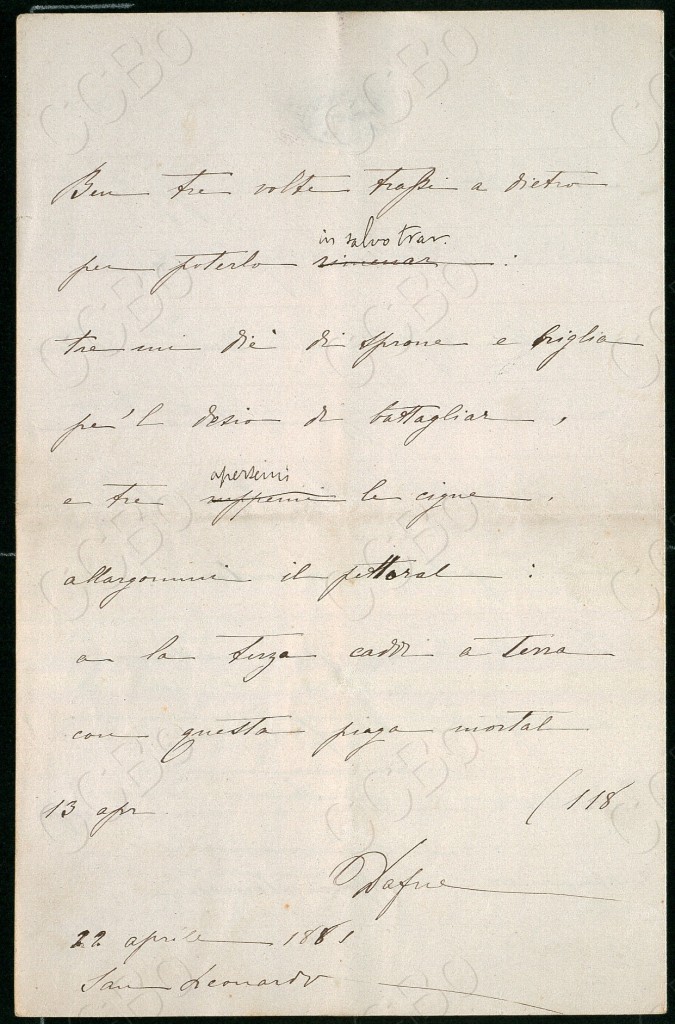 Ben tre volte trassi a dietro
in salvo trar.
per poterlo rimenar :
tre mi diè di sprone e briglia
pe 'l desio di battagliar ,
apersemi
e tre le cigne ,
allargommi il pettoral :
a la terza caddi a terra
con questa piaga mortal
13 apr. (118
Dafne
22 aprile 1881
San Leonardo